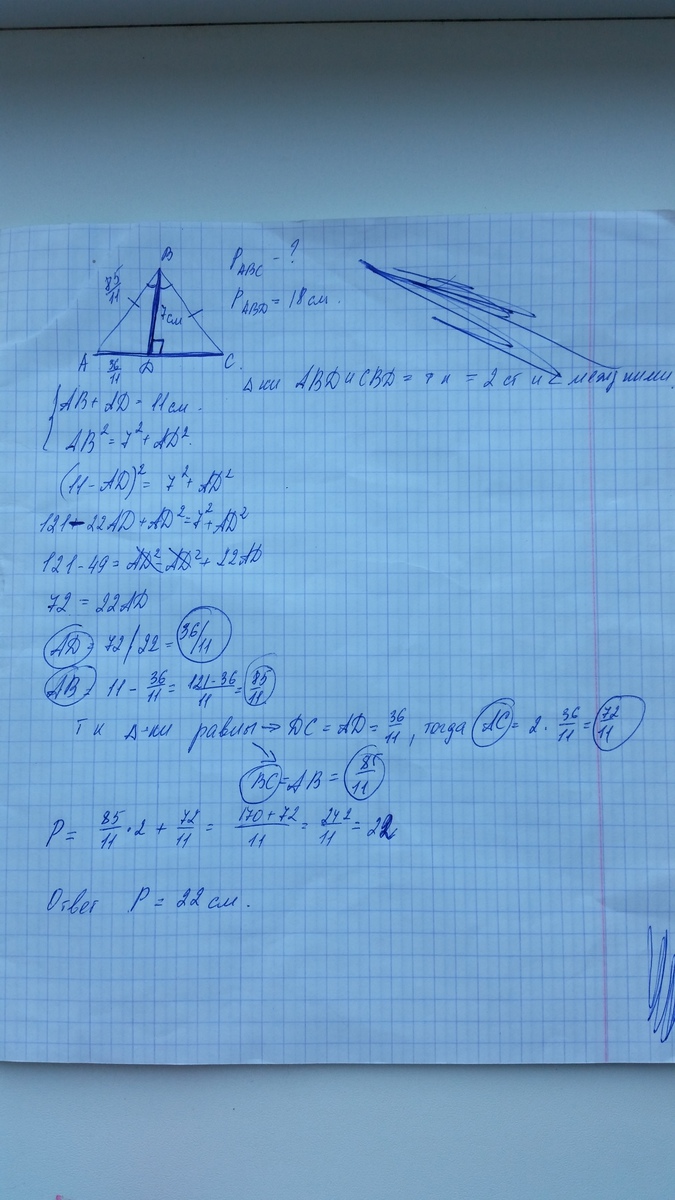 B
85/11
7 см
A
36/11
D
C.
P_ABC - ?
P_ABD = 18 см.
Δ ки ABD и CBD = т к = 2 ст и ∠ между ними.
{ AB + AD = 11 см.
AB² = 7² + AD².
(11 - AD)² = 7² + AD²
121 - 22AD + AD² = 7² + AD²
121 - 49 = AD² - AD² + 22AD
72 = 22AD
AD = 72/22 = 36/11
AB = 11 - 36/11 = 121-36/11 = 85/11
Т к Δ-ки равны → DC = AD = 36/11, тогда AC = 2 · 36/11 = 72/11
BC = AB = 85/11
P = 85/11 · 2 + 72/11 = 170+72/11 = 242/11 = 22
Ответ P = 22 см.